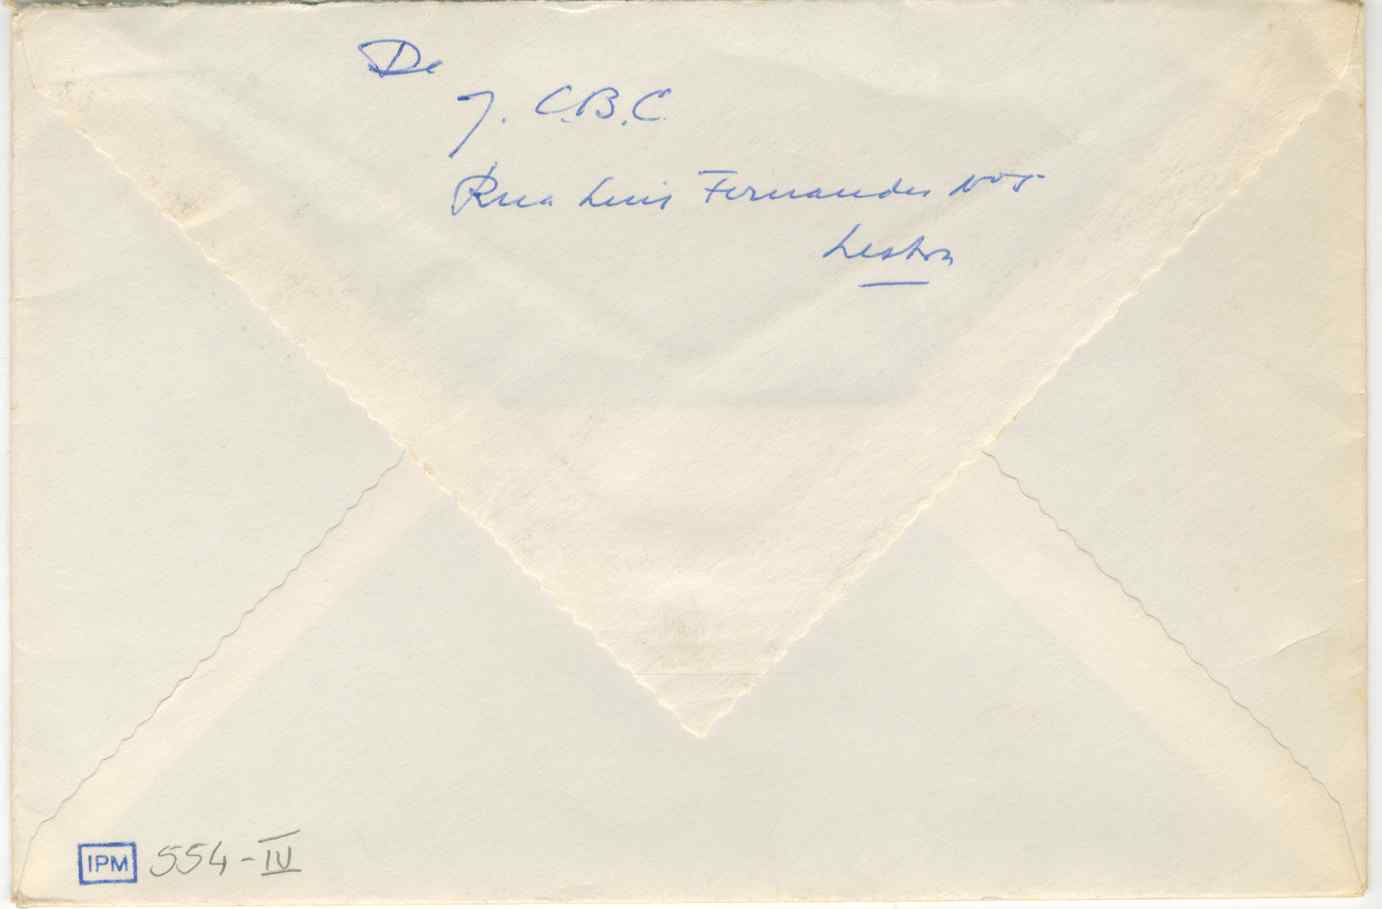 De
J. C.B.C.
Rua Luis Fernandes
Lisboa
IPM 554-IV